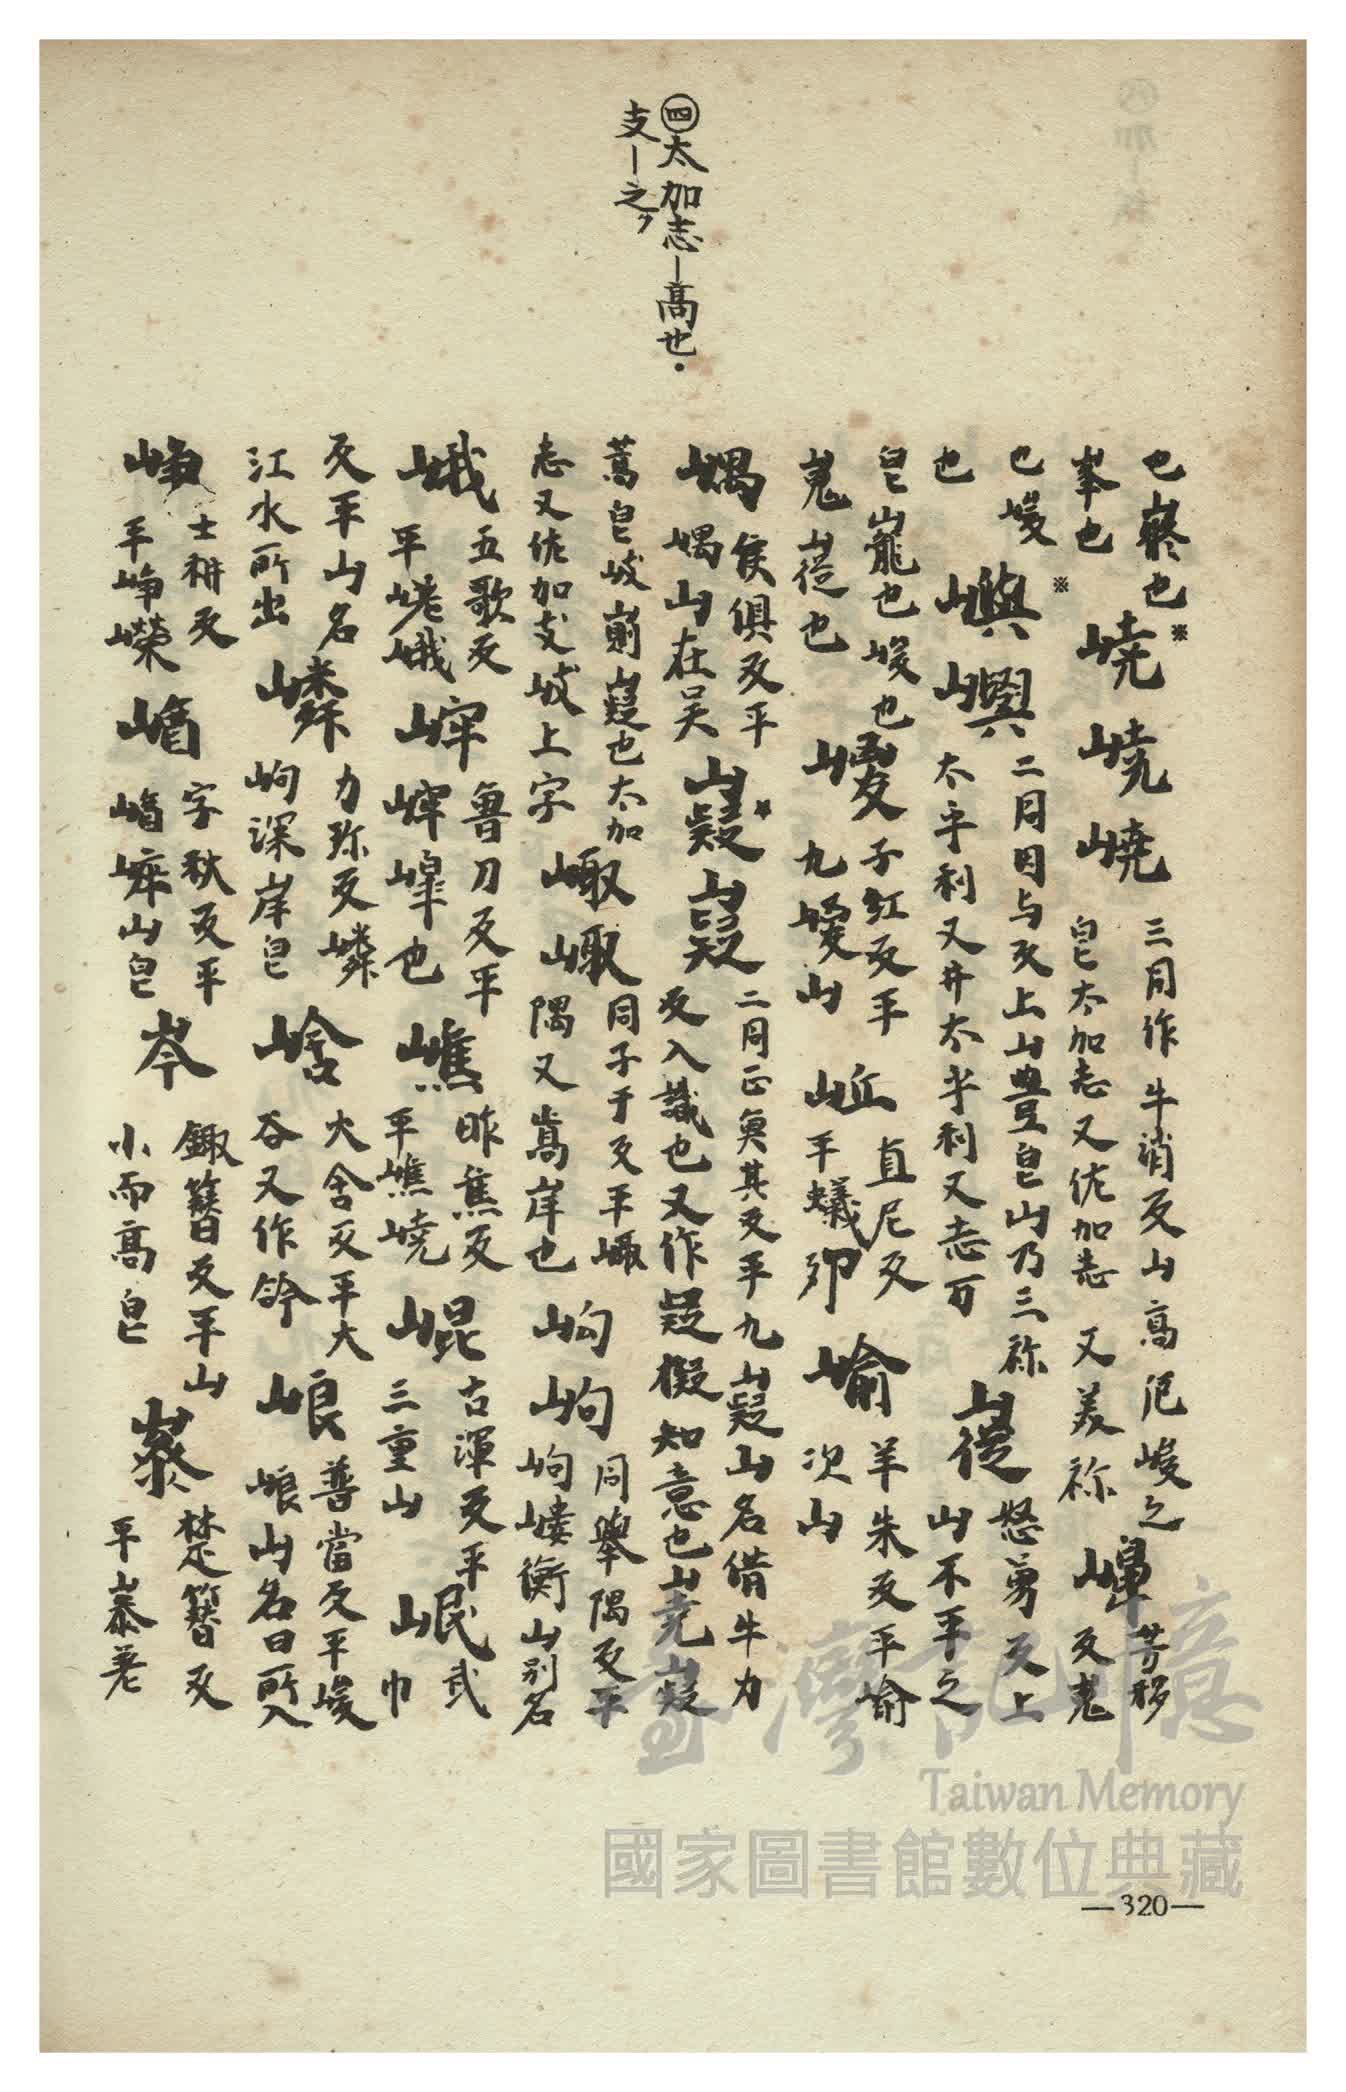 ㊃太加志—高也．
支—之〃
也嶷也※
峯也
嶢
嶢
嶢
三同作牛消反山高皃峻之
皃太加志又佐加志 又美祢
崥
芳移
反嵬
也峻※
也
嶼
二同因与反上山豊皃山乃三祢
太乎利又井太乎利又志万
嵸
怒勇反上
山不平之
皃巃也峻也
嵬嵸也
嵕
子紅反平
九嵕山
直尼反
平蟻卵
嵛
羊朱反平嵛
次山
嵎
侯俱反平
嵎山在吴
嶷
二同正奠其反平九嶷山名借牛力
反入識也又作疑擬知意也山尭嶷
蒿皃岐
嶷也太加
志又佐加支岐上字
㠊
同子于反平
隅又嶌岸也
岣
同舉隅反平
岣嶁衡山别名
峨
五歌反
平峔峨
崒
魯刀反平
也
嶕
昨焦反
平嶕嶢
崐
古渾反平
三重山
岷
武
巾
反平山名
江水所出
嶙
力珎反嶙
峋深岸皃
峆
大含反平大
谷又作
峎
普當反平峻
峎山名日所入
崢
士耕反
平崢嶸
崷
字秋反平
崷崪山皃
岑
鋤簪反平山
小而高皃
嵾
楚簪反
平嵾差
—320—
臺灣記憶
Taiwan Memory
國家圖書館數位典藏